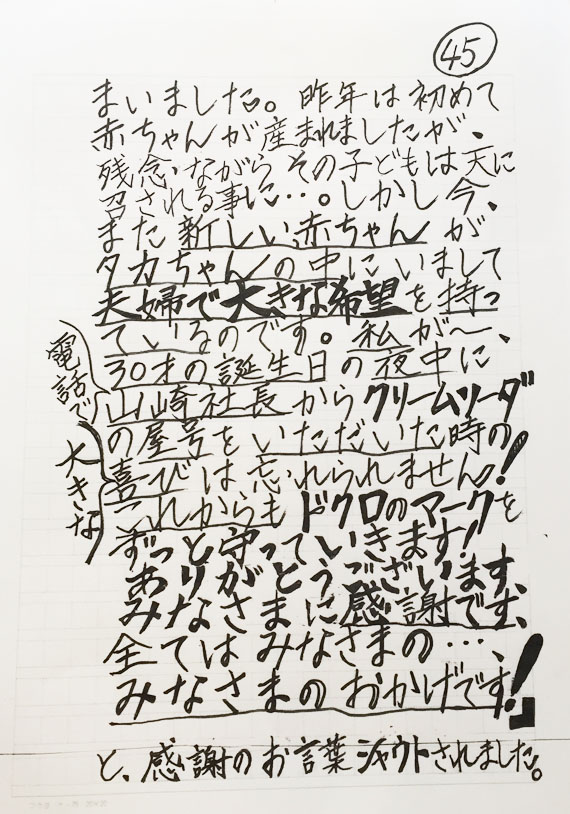 45
まいました。昨年は初めて
赤ちゃんが産まれましたが、
残念ながらその子どもは天に
召される事に…。しかし今、
また新しい赤ちゃんが
タカちゃんの中にいまして
夫婦で大きな希望を持っ
ているのです。私が〜、
30才の誕生日の夜中に、
電話で
山崎社長からクリームソーダ
の屋号をいただいた時の
大きな
喜びは忘れられません!
これからもドクロのマークを
ずっと守っていきます!
ありがとうございます、
みなさまに感謝です、
全てはみなさまの…、
みなさまのおかげです!」
と、感謝のお言葉シャウトされました。